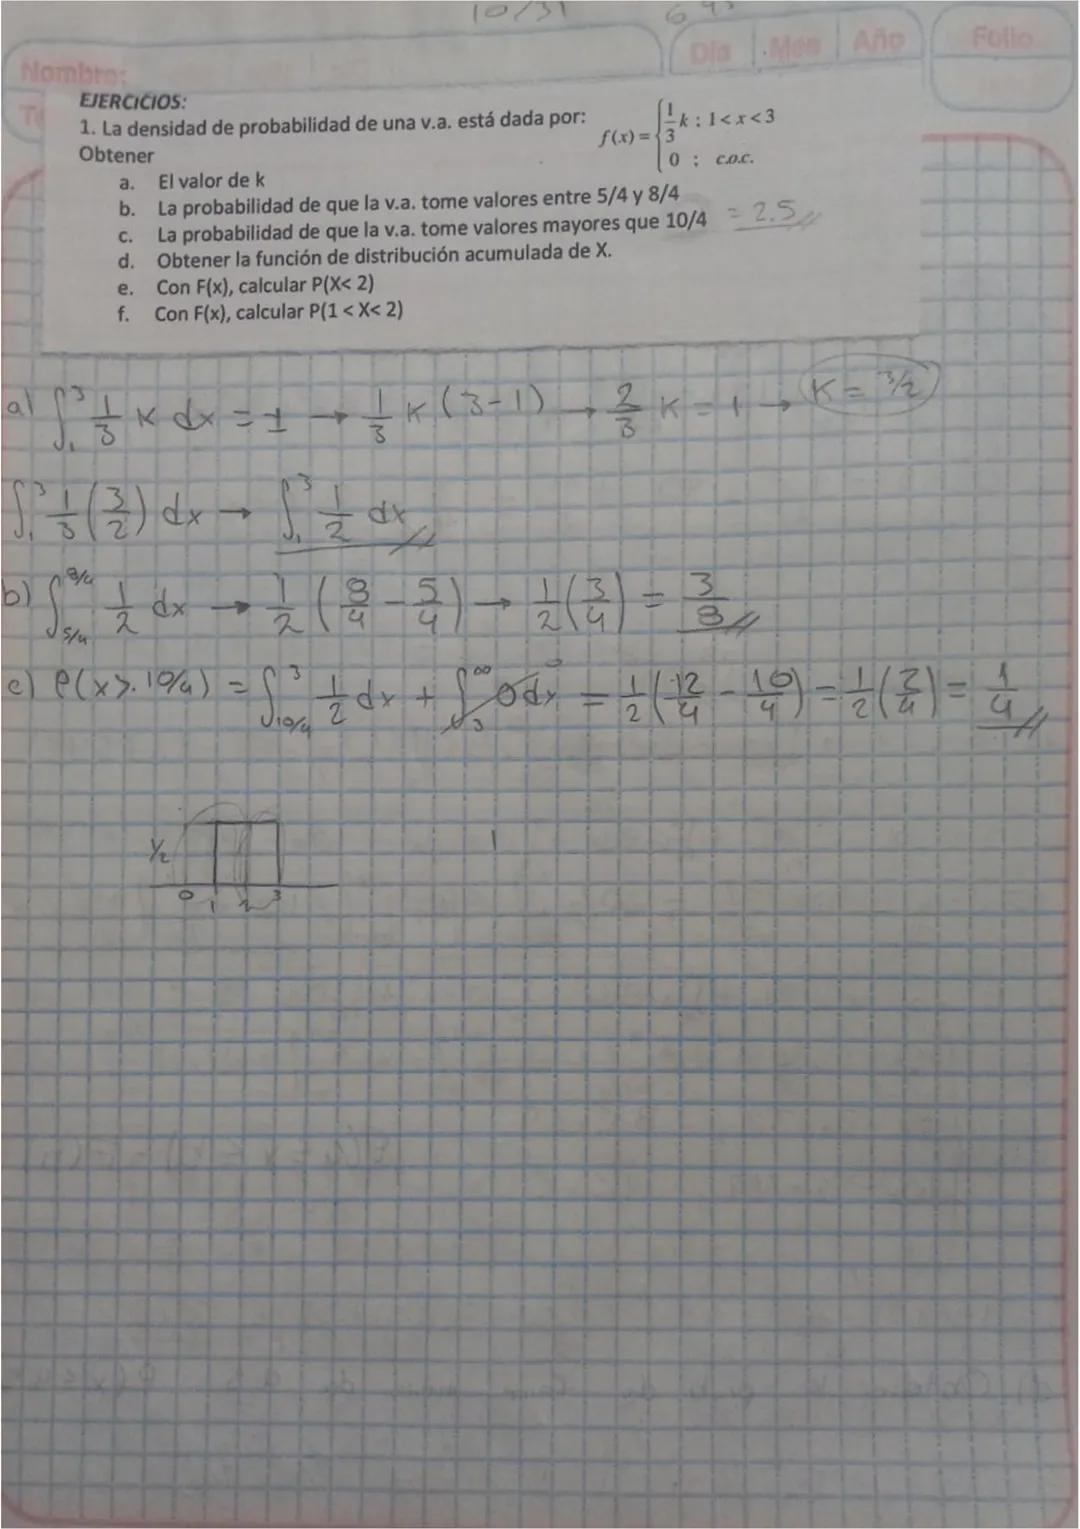 10/31
Día Mes Año Folio
Nombre:
EJERCICIOS:
1. La densidad de probabilidad de una v.a. está dada por: f(x) = { 1/3 k : 1 < x < 3
0 : c.o.c.
Obtener
a. El valor de k
b. La probabilidad de que la v.a. tome valores entre 5/4 y 8/4
c. La probabilidad de que la v.a. tome valores mayores que 10/4 = 2.5
d. Obtener la función de distribución acumulada de X.
e. Con F(x), calcular P(X< 2)
f. Con F(x), calcular P(1 < X< 2)
a) ∫₁³ 1/3 K dx = 1 → 1/3 K (3-1) → 2/3 K = 1 → K = 3/2
∫₁³ 1/3 (3/2) dx → ∫₁³ 1/2 dx
b) ∫_{5/4}^{8/4} 1/2 dx → 1/2 (8/4 - 5/4) → 1/2 (3/4) = 3/8
c) P(x > 10/4) = ∫_{10/4}^{3} 1/2 dx + ∫_{3}^{∞} 0 dx 0 = 1/2 (12/4 - 10/4) = 1/2 (2/4) = 1/4
1/2
0 1 2 3